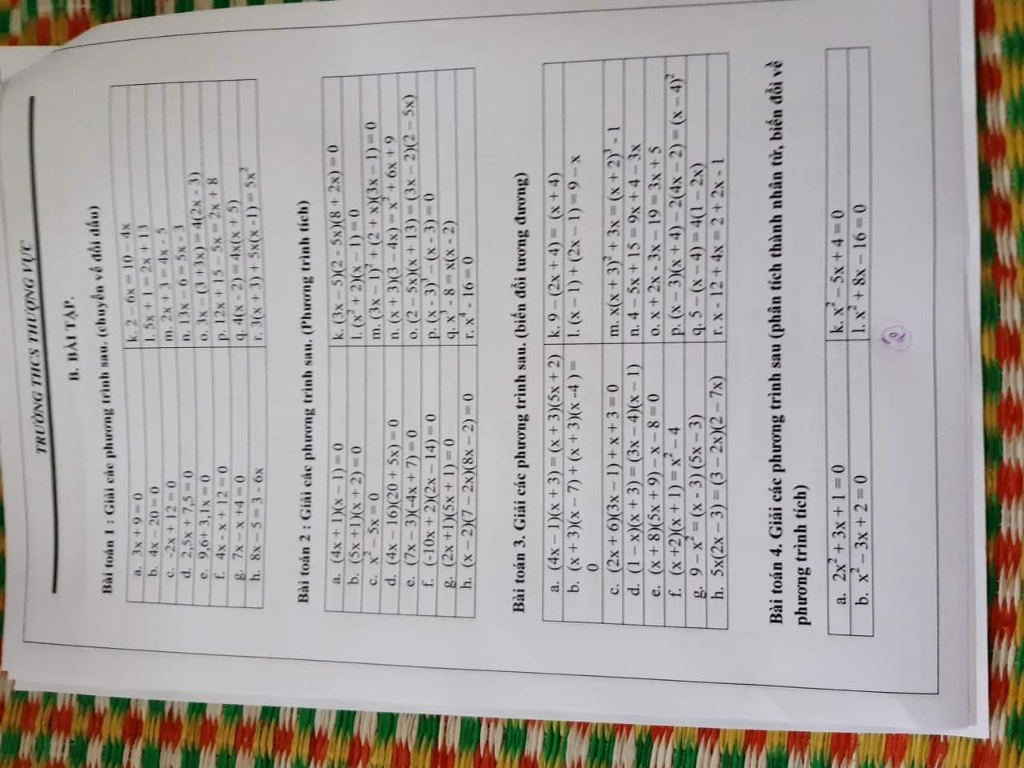 TRƯỜNG THCS THƯỢNG VỰC
B. BÀI TẬP.
Bài toán 1 : Giải các phương trình sau. (chuyển vế đổi dấu)
a. 3x + 9 = 0 k. 2 – 6x = 10 – 4x
b. 4x - 20 = 0 l. 5x + 1 = 2x + 13
c. -2x + 12 = 0 m. 2x + 3 = 4x - 5
d. 2,5x + 7,5 = 0 n. 13x – 6 = 5x - 3
e. 9,6+ 3,1x = 0 o. 3x – (3 +3x) = 4(2x - 3)
f. 4x - x + 12 = 0 p. 12x + 15 – 5x = 2x + 8
g. 7x – x +4 = 0 q. 4(x - 2) = 4x(x + 5)
h. 8x – 5 = 3 - 6x r. 3(x + 3) + 5x(x -1) = 5x²
Bài toán 2 : Giải các phương trình sau. (Phương trình tích)
a. (4x + 1)(x – 1) = 0 k. (3x – 5)(2 - 5x)(8 + 2x) = 0
b. (5x +1)(x + 2) = 0 l. (x² + 2)(x – 1) = 0
c. x² – 5x = 0 m. (3x – 1)² + (2 + x)(3x – 1) = 0
d. (4x – 16)(20 + 5x) = 0 n. (x + 3)(3 – 4x) = x² + 6x + 9
e. (7x – 3)(-4x + 7) = 0 o. (2 – 5x)(x + 13) = (3x – 2)(2 – 5x)
f. (-10x + 2)(2x – 14) = 0 p. (x - 3)² – (x - 3) = 0
g. (2x +1)(5x + 1) = 0 q. x³ - 8 = x(x - 2)
h. (x – 2)(7 – 2x)(8x – 2) = 0 r. x⁴ - 16 = 0
Bài toán 3. Giải các phương trình sau. (biến đổi tương đương)
a. (4x – 1)(x + 3) = (x + 3)(5x + 2) k. 9 – (2x + 4) = (x + 4)
b. (x + 3)(x – 7) + (x + 3)(x -4 ) = l. (x – 1) + (2x – 1) = 9 – x
0
c. (2x + 6)(3x – 1) + x + 3 = 0 m. x(x + 3)² + 3x = (x + 2)³ - 1
d. (1 – x)(x + 3) = (3x – 4)(x – 1) n. 4 – 5x + 15 = 9x + 4 – 3x
e. (x + 8)(5x + 9) – x – 8 = 0 o. x + 2x - 3x – 19 = 3x + 5
f. (x +2)(x + 1) = x² – 4 p. (x – 3)(x + 4) – 2(4x – 2) = (x – 4)²
g. 9 – x² = (x - 3) (5x – 3) q. 5 – (x – 4) = 4(1 – 2x)
h. 5x(2x – 3) = (3 – 2x)(2 – 7x) r. x - 12 + 4x = 2 + 2x - 1
Bài toán 4. Giải các phương trình sau (phân tích thành nhân tử, biến đổi về
phương trình tích)
a. 2x² + 3x + 1 = 0 k. x² – 5x + 4 = 0
b. x² – 3x + 2 = 0 l. x² + 8x – 16 = 0
2